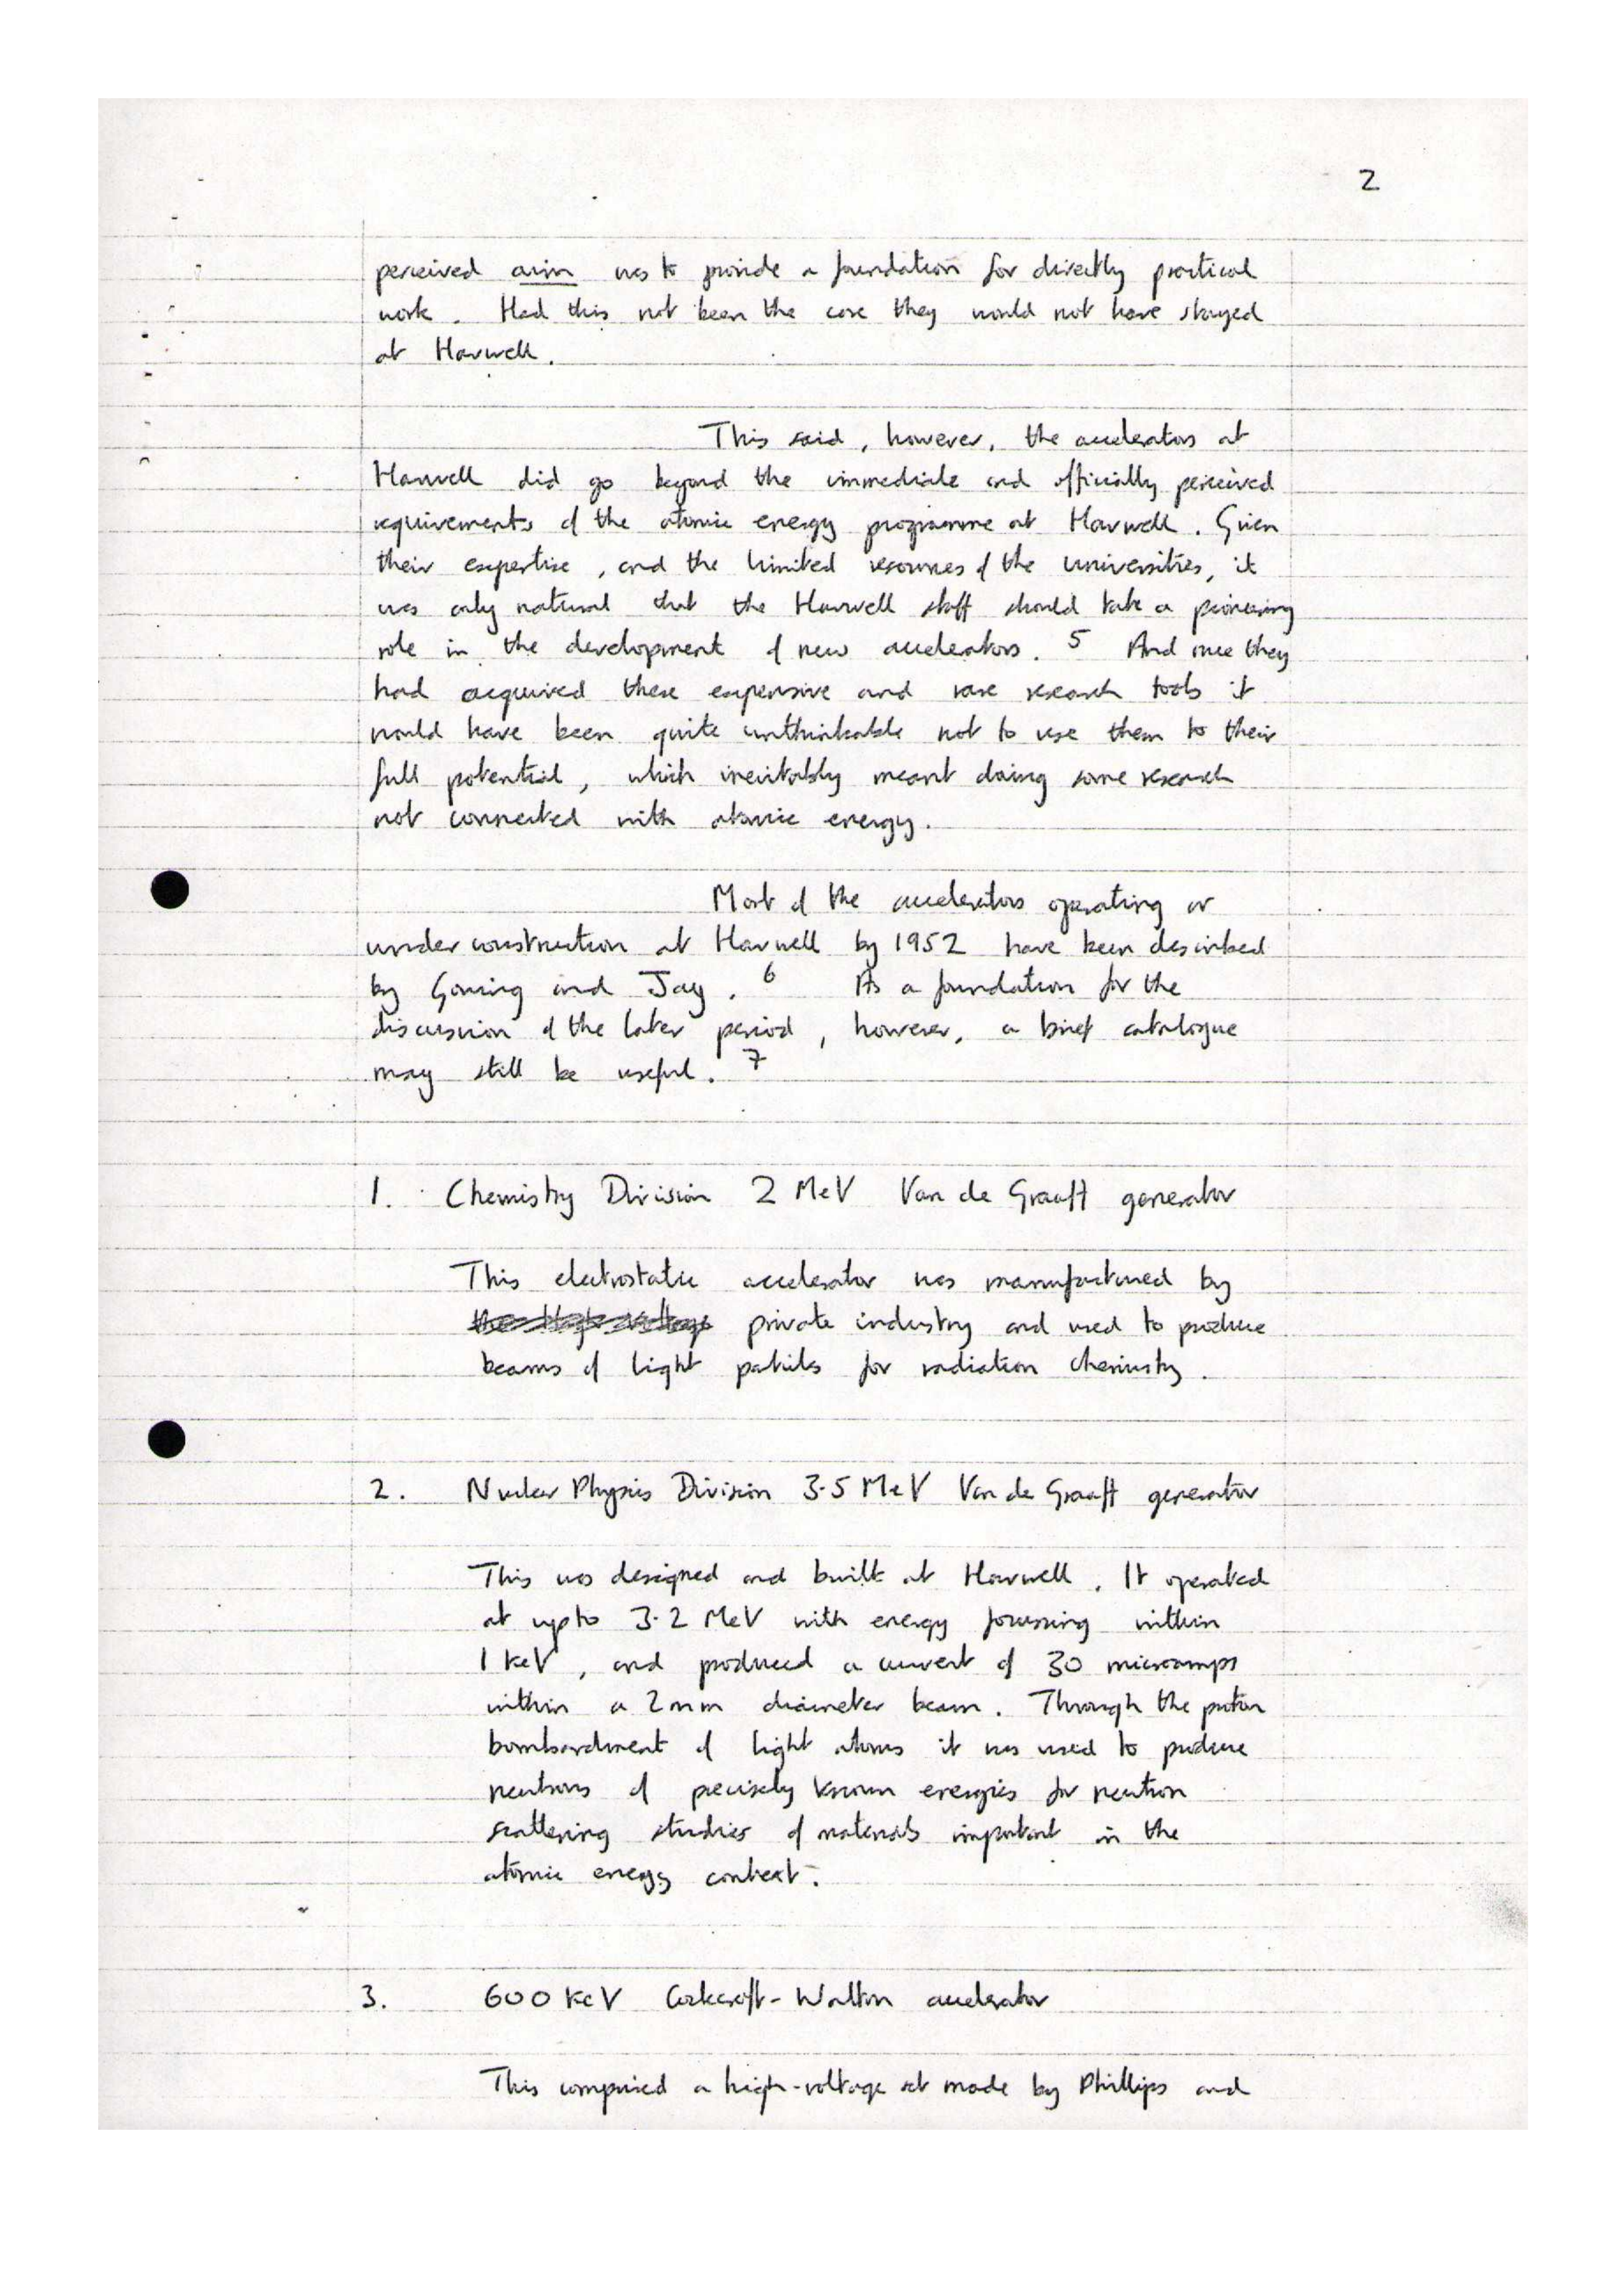 2
perceived aim was to provide a foundation for directly practical
work. Had this not been the case they would not have stayed
at Harwell.
This said, however, the accelerators at
Harwell did go beyond the immediate and officially perceived
requirements of the atomic energy programme at Harwell. Given
their expertise, and the limited resources of the universities, it
was only natural that the Harwell staff should take a pioneering
role in the development of new accelerators. 5 And once they
had acquired these expensive and rare research tools it
would have been quite unthinkable not to use them to their
full potential, which inevitably meant doing some research
not connected with atomic energy.
Most of the accelerators operating or
under construction at Harwell by 1952 have been described
by Gowing and Jay. 6 As a foundation for the
discussion of the later period, however, a brief catalogue
may still be useful. 7
1. Chemistry Division 2 MeV Van de Graaff generator
This electrostatic accelerator was manufactured by
private industry and used to produce
beams of light particles for radiation chemistry.
2. Nuclear Physics Division 3.5 MeV Van de Graaff generator
This was designed and built at Harwell. It operated
at up to 3.2 MeV with energy focussing within
1 KeV, and produced a current of 30 microamps
within a 2mm diameter beam. Through the proton
bombardment of light atoms it was used to produce
neutrons of precisely known energies for neutron
scattering studies of materials important in the
atomic energy context.
3. 600 KeV Cockcroft-Walton accelerator
This comprised a high-voltage set made by Phillips and